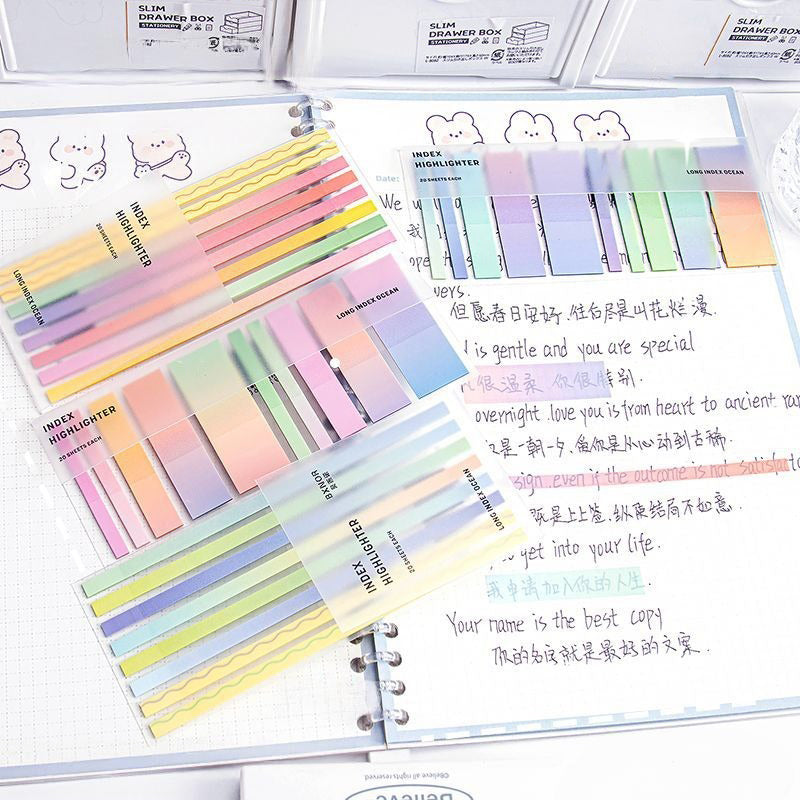 SLIM
DRAWER BOX
STATIONERY
SLIM
DRAWER BOX
STATIONERY
SLIM
DRAWER BOX
STATIONERY
INDEX
HIGHLIGHTER
20 SHEETS EACH
LONG INDEX OCEAN
INDEX
HIGHLIGHTER
20 SHEETS EACH
LONG INDEX OCEAN
INDEX
HIGHLIGHTER
20 SHEETS EACH
LONG INDEX OCEAN
BXNOR
INDEX
HIGHLIGHTER
20 SHEETS EACH
LONG INDEX OCEAN
Date:
We
我
vers.
但愿春日安好,往后尽是山花烂漫.
is gentle and you are special
很温柔 你很特别.
overnight .love you is from heart to ancient rar
是一朝一夕,爱你是从心动到古稀.
sign .even if the outcome is not satisfacto
既是上上签,纵使结局不如意.
to get into your life.
我申请加入你的人生.
Your name is the best copy
你的名字就是最好的文案.
©Believe all rights reserved
Believe